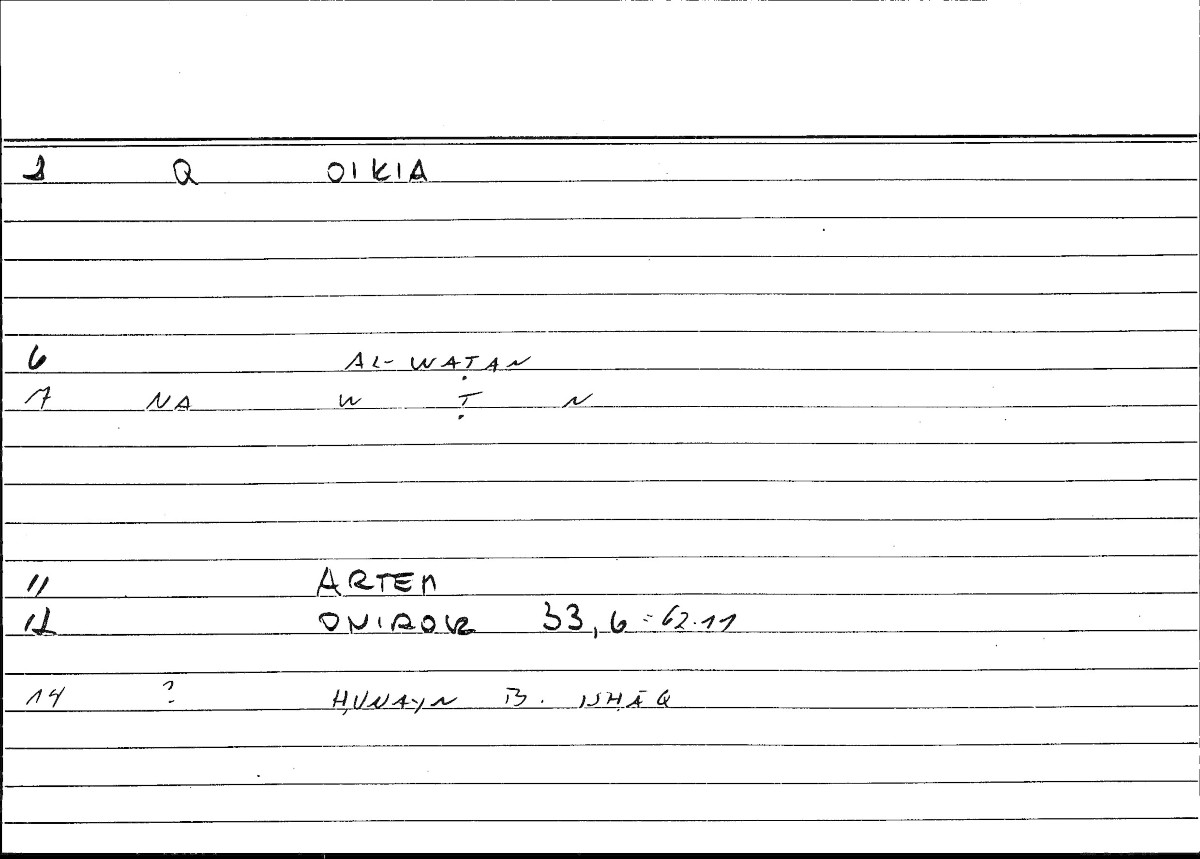 1 Q OIKIA
6 AL-WAṬAN
7 NA W Ṭ N
11 ARTEM
12 ONIROK 33,6 = 62.11
14 ? ḤUNAYN B. ISḤĀQ